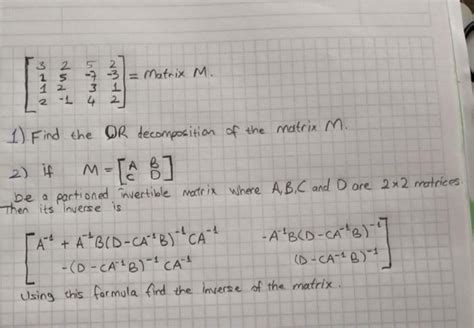 [3 2 5 2
1 5 -7 -3 = Matrix M.
1 2 3 1
2 -1 4 2]
1) Find the QR decomposition of the matrix M.
2) if M = [A B
C D]
be a partioned invertible matrix where A,B,C and D are 2×2 matrices
Then its inverse is
[A⁻¹ + A⁻¹B(D-CA⁻¹B)⁻¹CA⁻¹ -A⁻¹B(D-CA⁻¹B)⁻¹
-(D-CA⁻¹B)⁻¹CA⁻¹ (D-CA⁻¹B)⁻¹]
Using this formula find the Inverse of the matrix.